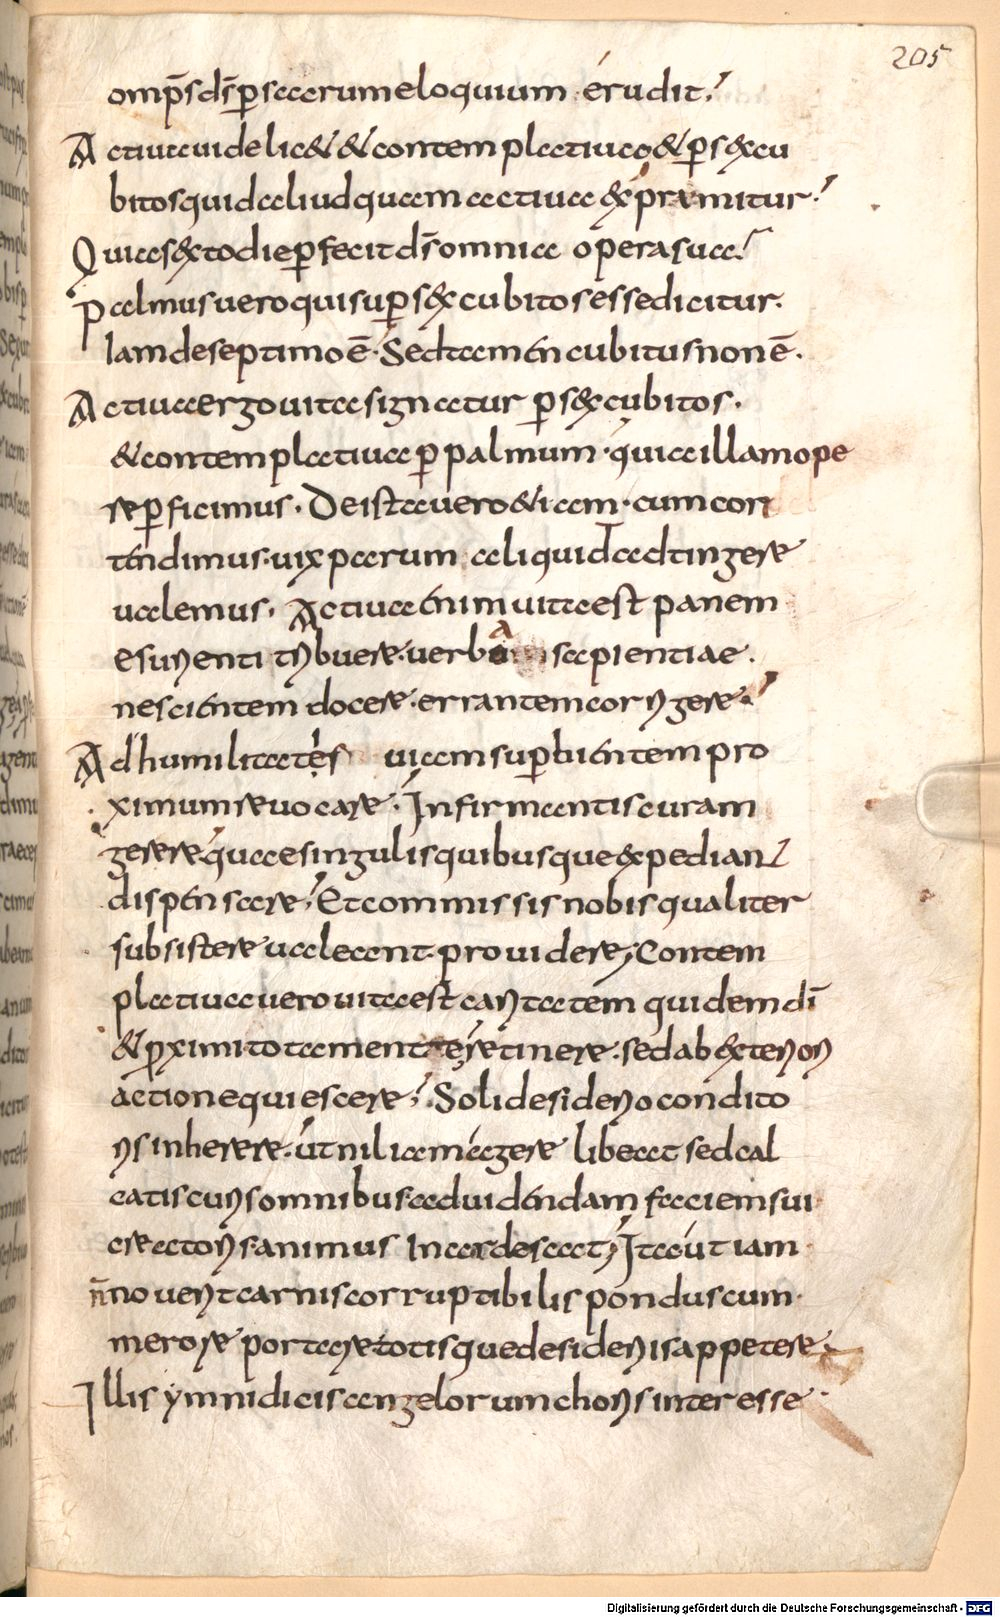 205
omp̄s ds̄ p̲ sacrum eloquium erudit;
Actiua uidelic& & contemplatiua & p̲ s&cu
bitos quid aliud quam actiua exprimitur?
Quia sexto die p̲fecit ds̄ omnia opera sua;
Palmus uero qui sup̲ sex cubitos esse dicitur.
Iam de septimo ē. Sed tamen cubitus non ē.
Actiua ergo uita signatur p̲ sex cubitos.
& contemplatiua p̲ palmum. quia illam ope
re p̲ficimus. De ista uero & iam. cum con
tendimus. uix parum aliquid adtingere
ualemus. Actiua enim uita est panem
esurienti tribuere. uerba sapientiae.
nescientem docere. errantem corrigere;
Ad humilitatis uiam sup̲bientem pro
ximum reuocare. Infirmantis curam
gerere quae singulis quibusque expediant
dispensare; Et commissis nobis qualiter
subsistere ualeant. prouidere; Contem
platiua uero uita est caritatem quidem dī
& p̲ximi tota mente retinere. sed ab exteriori
actione quiescere; Soli desiderio condito
ris inherere. ut nil iam agere libeat sed cal
catis curis omnibus. ad uidendam faciem sui
creatoris animus inardescat; Ita ut iam
n̄ nouerit carnis corruptibilis pondus cum
merore portare totisque desideriis appetere.
Illis ymnidicis angelorum choris interesse.
Digitalisierung gefördert durch die Deutsche Forschungsgemeinschaft - DFG